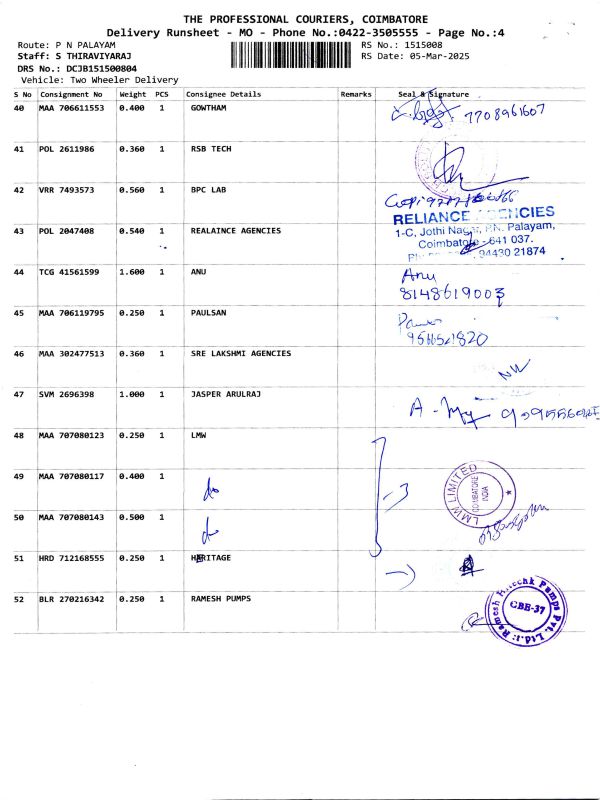 THE PROFESSIONAL COURIERS, COIMBATORE
Delivery Runsheet - MO - Phone No.:0422-3505555 - Page No.:4
Route: P N PALAYAM
RS No.: 1515008
Staff: S THIRAVIYARAJ
RS Date: 05-Mar-2025
DRS No.: DCJB151500804
Vehicle: Two Wheeler Delivery
S No Consignment No Weight PCS Consignee Details Remarks Seal & Signature
40 MAA 706611553 0.400 1 GOWTHAM 7708961607
41 POL 2611986 0.360 1 RSB TECH
42 VRR 7493573 0.560 1 BPC LAB
43 POL 2047408 0.540 1 REALAINCE AGENCIES
RELIANCE AGENCIES
1-C, Jothi Nagar, P.N. Palayam,
Coimbatore - 641 037.
94430 21874
44 TCG 41561599 1.600 1 ANU Anu
8148619003
45 MAA 706119795 0.250 1 PAULSAN
46 MAA 302477513 0.360 1 SRE LAKSHMI AGENCIES
47 SVM 2696398 1.000 1 JASPER ARULRAJ
48 MAA 707080123 0.250 1 LMW
49 MAA 707080117 0.400 1 do
-3
LMW LIMITED
COIMBATORE
INDIA
50 MAA 707080143 0.500 1 do
51 HRD 712168555 0.250 1 HARITAGE
52 BLR 270216342 0.250 1 RAMESH PUMPS
CBE-37